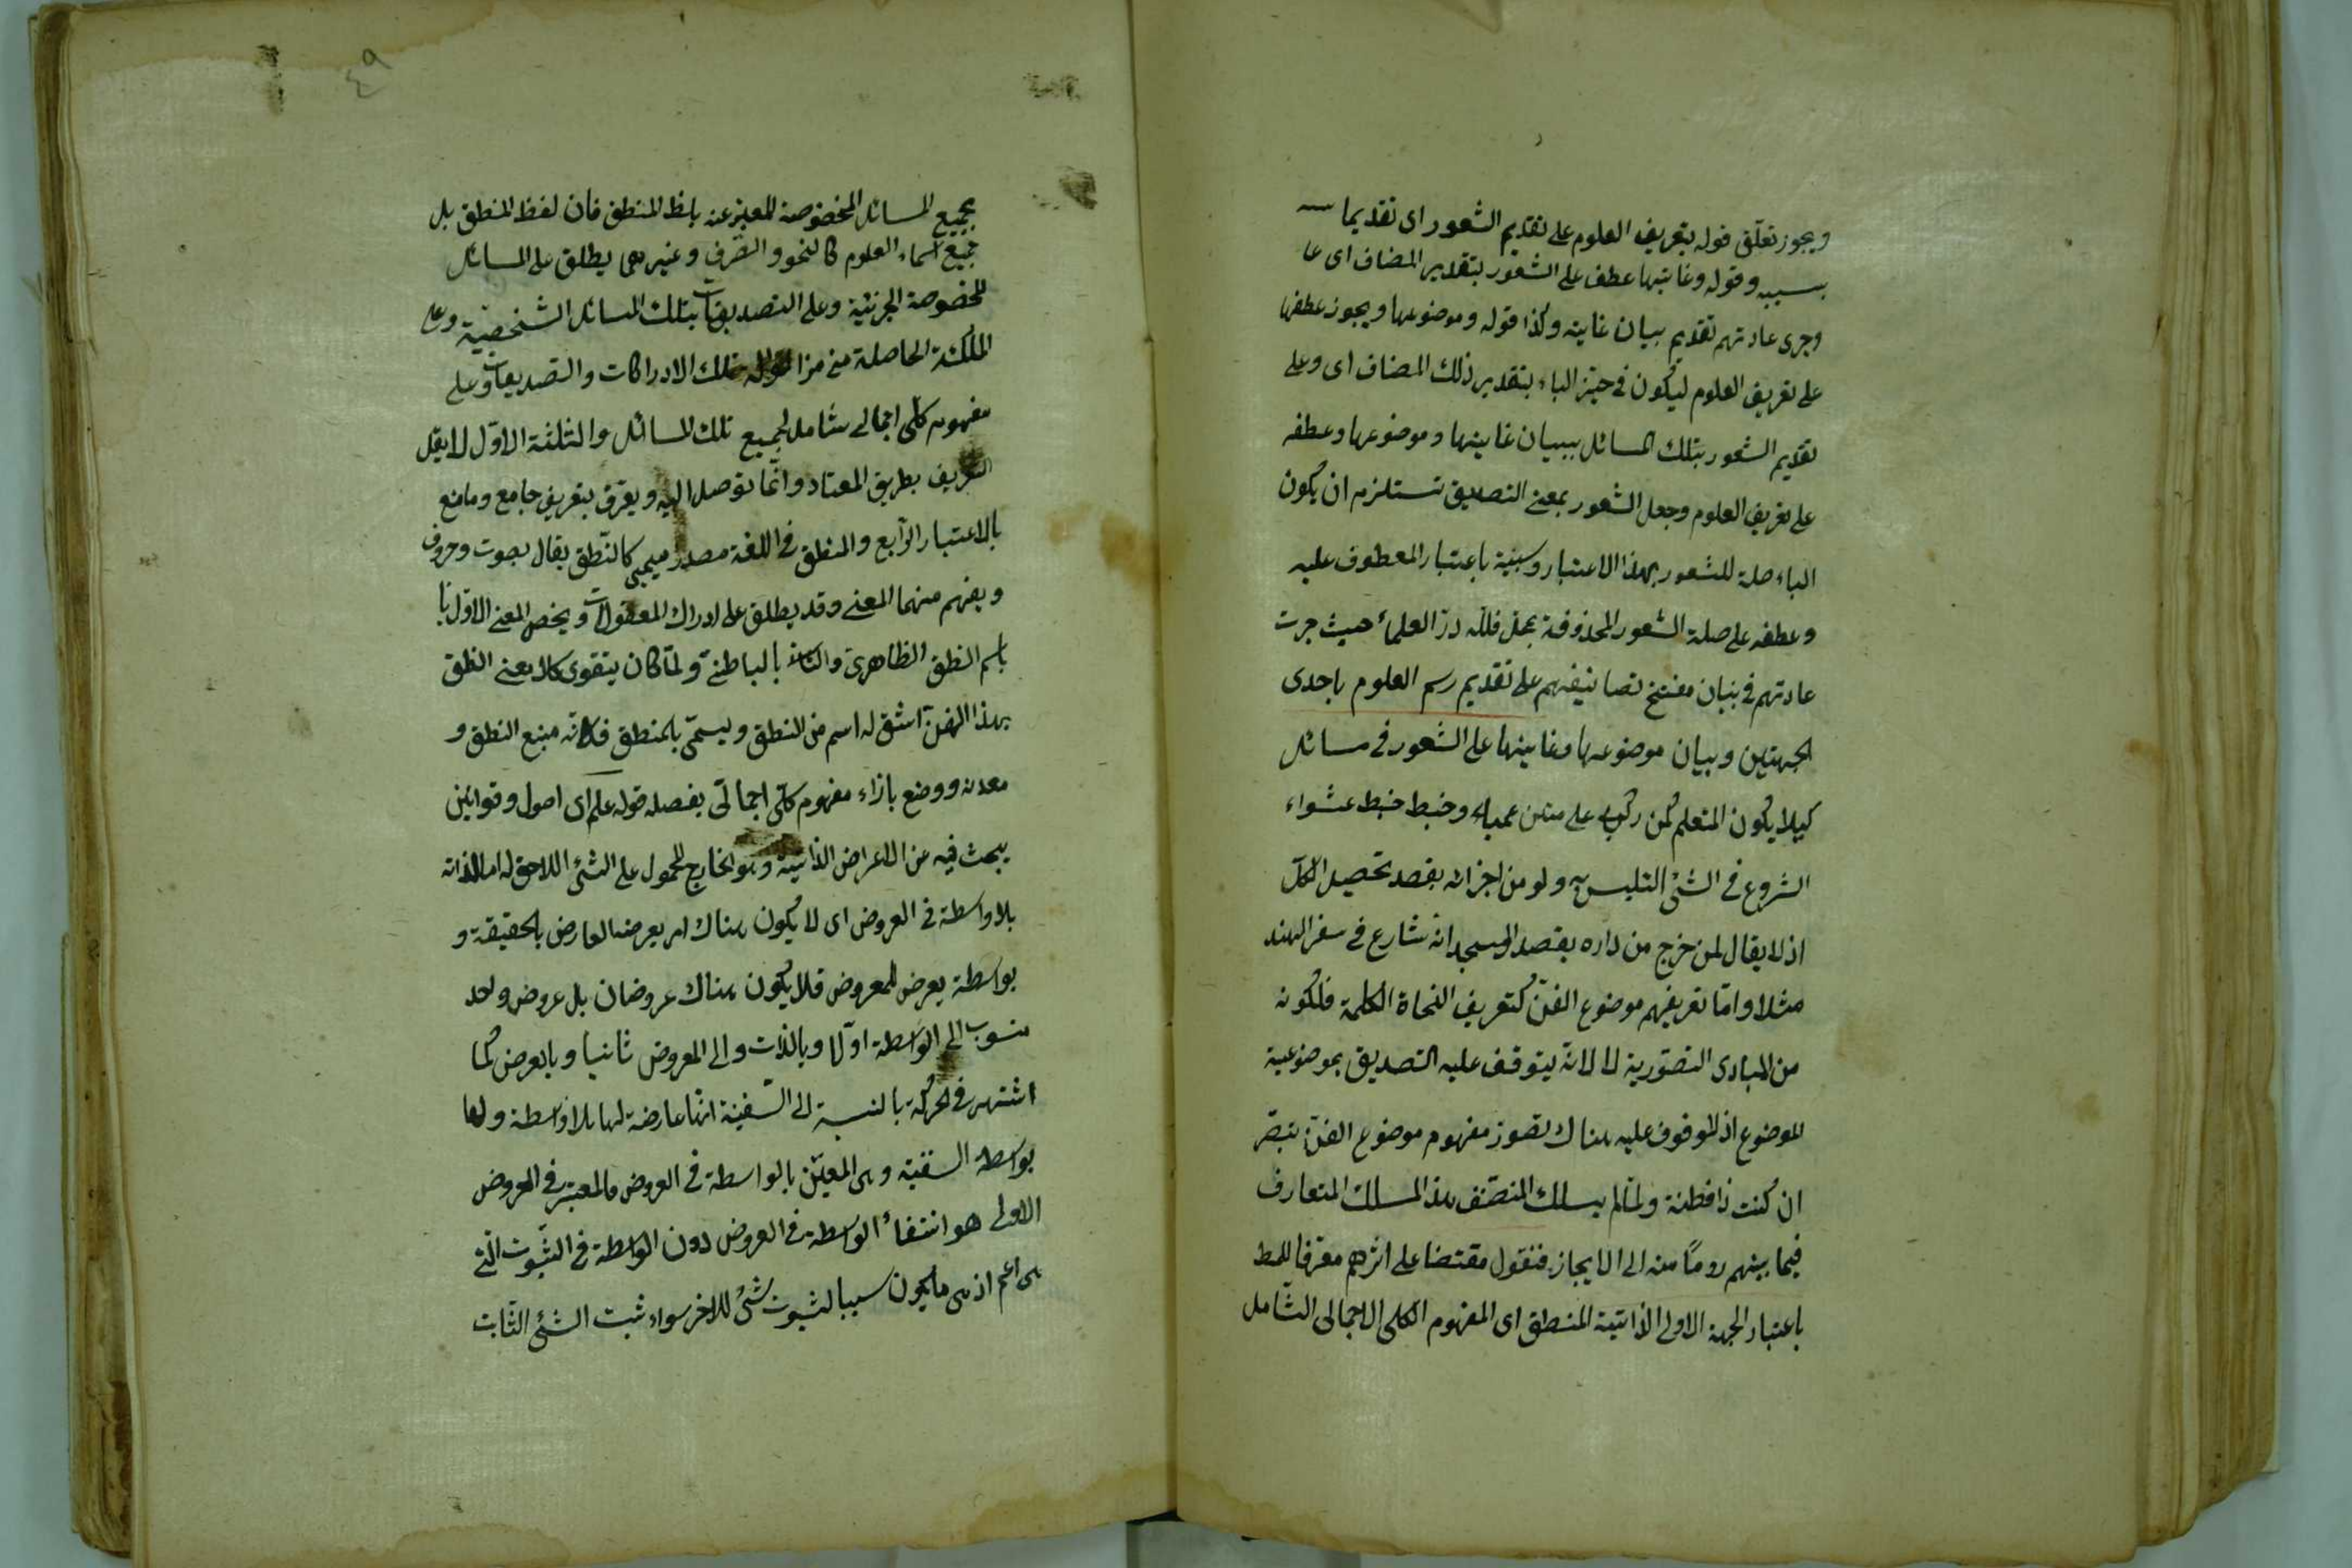 ويجوز تعلق قوله بتعريف العلوم على تقديم الشعور اى تقديما
بسببه وقوله وغايتها عطف على الشعور بتقدير المضاف اى عا
وجرى عادتهم تقديم بيان غايته وكذا قوله وموضوعها ويجوز عطفها
على تعريف العلوم ليكون فى حيّز الباء بتقدير ذلك المضاف اى وعلى
تقديم الشعور بتلك المسائل ببيان غايتها وموضوعها وعطفه
على تعريف العلوم وجعل الشعور بمعنى التصديق تستلزم ان يكون
الباء صلة للشعور بهذا الاعتبار وسببية باعتبار المعطوف عليه
وعطفه على صلة الشعور المحذوفة بمحل فلله درّ العلماء حيث جرت
عادتهم فى مفتتح تصانيفهم على تقديم رسم العلوم باحدى
الجهتين وبيان موضوعها وغايتها على الشعور فى مسائل
كيلا يكون المتعلم كمن ركب على متن عمياء وخبط خبط عشواء
الشروع فى الشئ التلبس به ولو من اجزائه بقصد تحصيل الكل
اذ لا يقال لمن خرج من داره بقصد المسجد انه شارع فى سفر الهند
مثلا وامّا تعريفهم موضوع الفنّ كتعريف النحاة الكلمة فلكونه
من المبادى التصوّرية لا لانه يتوقف عليه التصديق بموضوعية
الموضوع اذ الموقوف عليه هناك تصوّر مفهوم موضوع الفنّ تبصّر
ان كنت ذا فطنة ولمّا لم يسلك المصنّف هذا المسلك المتعارف
فيما بينهم روما منه الى الايجاز فنقول مقتضا على اثرهم معرّفا للمط
باعتبار الجهة الاولى الذاتية المنطق اى المفهوم الكلى الاجمالى الشامل
٤٩
بجميع المسائل المخصوصة المعبّر عنه بلفظ المنطق فان لفظ المنطق بل
جميع اسماء العلوم كالنحو والصّرف وغيرهما يطلق على المسائل
المخصوصة الجزئية وعلى التصديقات بتلك المسائل الشخصيّة وعلى
الملكة الحاصلة من مزاولة تلك الادراكات والتصديقات وعلى
مفهوم كلّى اجمالى شامل لجميع تلك المسائل والثلثة الاوّل لا يقبل
التعريف بطريق المعتاد وانّما توصل اليه ويعرّف بتعريف جامع ومانع
بالاعتبار الرّابع والمنطق فى اللغة مصدر ميمى كالنّطق يقال بصوت وحروف
ويفهم منهما المعنى وقد يطلق على ادراك المعقولات ويخص المعنى الاوّل با
باسم النطق الظاهرى والثانى بالباطنىّ ولمّا كان يتقوى كلا معنى النطق
بهذا الفنّ اشتق له اسم من النطق ويسمّى بالمنطق فكانّه منبع النطق و
معدنه ووضع بازاء مفهوم كلّى اجمالىّ يفصله قوله علم اى اصول وقوانين
يبحث فيه عن الاعراض الذاتيّة وهو الخارج المحمول على الشئ اللاحق له اما لذاته
بلا واسطة فى العروض اى لا يكون هناك امر يعرضه العارض بالحقيقة و
بواسطة يعرض للمعروض فلا يكون هناك عروضان بل عروض واحد
منسوب الى الواسطة اوّلا وبالذات والى المعروض ثانيا وبالعرض كما
اشتهر فى الحركة بالنسبة الى السّفينة انّها عارضة لها بلا واسطة
بواسطة السفينة وهى المعيّن بالواسطة فى العروض فالمعتبر فى العروض
الاولى هو انتفاء الواسطة فى العروض دون الواسطة فى الثّبوت الّتى
هى اعم اذ هى ما يكون سببا لثبوت شئ للاخر سواء ثبت الشئ الثّابت